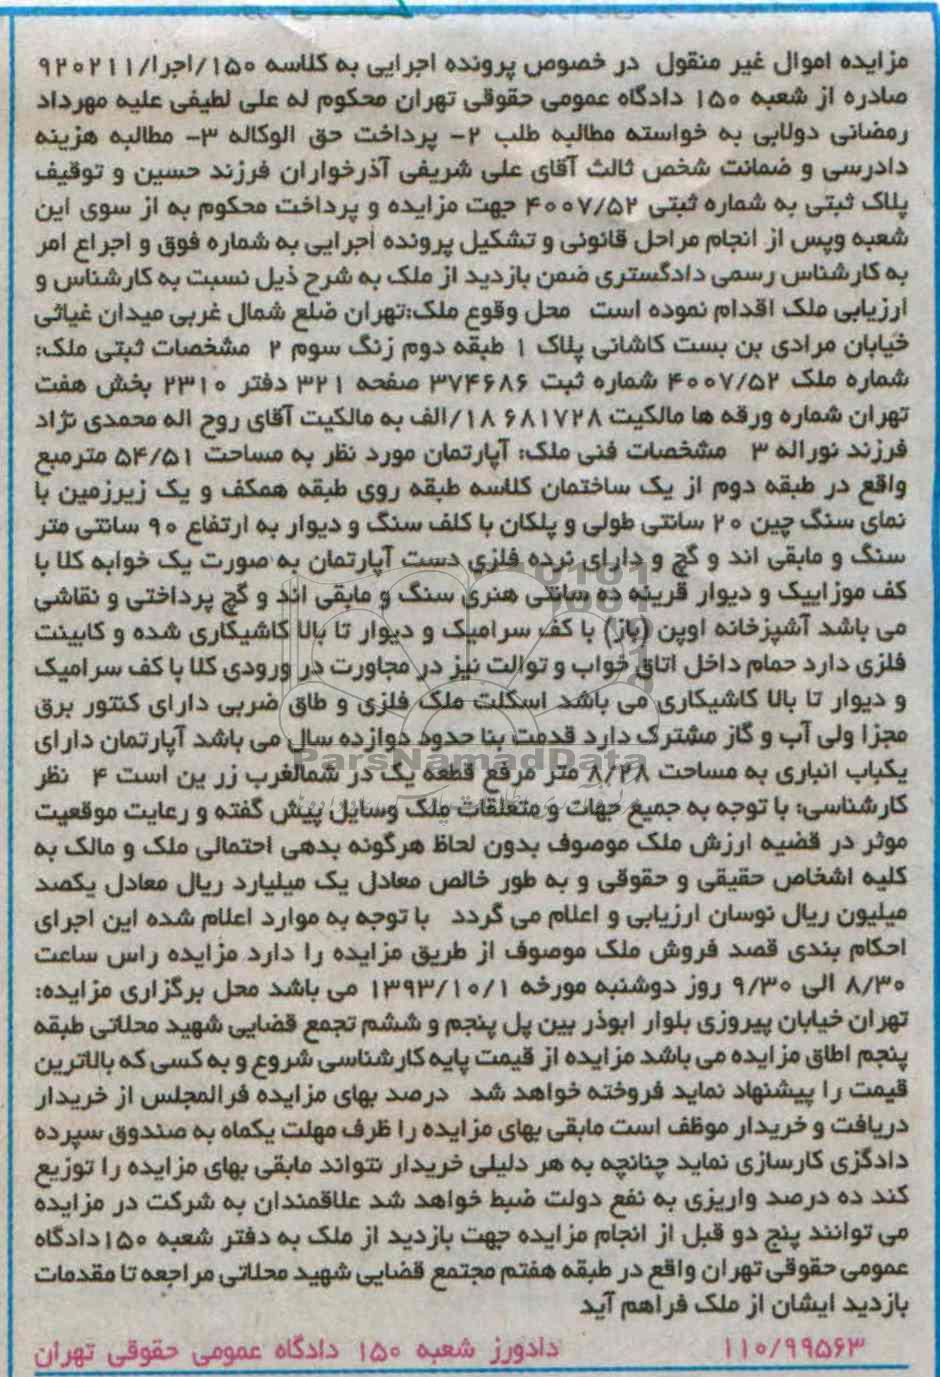 مزایده اموال غیر منقول در خصوص پرونده اجرایی به کلاسه ۱۵۰/اجرا/۹۲۰۲۱۱
صادره از شعبه ۱۵۰ دادگاه عمومی حقوقی تهران محکوم له علی لطیفی علیه مهرداد
رمضانی دولابی به خواسته مطالبه طلب ۲- پرداخت حق الوکاله ۳- مطالبه هزینه
دادرسی و ضمانت شخص ثالث آقای علی شریفی آذرخواران فرزند حسین و توقیف
پلاک ثبتی به شماره ثبتی ۴۰۰۷/۵۲ جهت مزایده و پرداخت محکوم به از سوی این
شعبه وپس از انجام مراحل قانونی و تشکیل پرونده اجرایی به شماره فوق و اجراع امر
به کارشناس رسمی دادگستری ضمن بازدید از ملک به شرح ذیل نسبت به کارشناس و
ارزیابی ملک اقدام نموده است محل وقوع ملک:تهران ضلع شمال غربی میدان غیاثی
خیابان مرادی بن بست کاشانی پلاک ۱ طبقه دوم زنگ سوم ۲ مشخصات ثبتی ملک:
شماره ملک ۴۰۰۷/۵۲ شماره ثبت ۳۷۴۶۸۶ صفحه ۳۲۱ دفتر ۲۳۱۰ بخش هفت
تهران شماره ورقه ها مالکیت ۶۸۱۷۲۸ ۱۸/الف به مالکیت آقای روح اله محمدی نژاد
فرزند نوراله ۳ مشخصات فنی ملک: آپارتمان مورد نظر به مساحت ۵۴/۵۱ مترمبع
واقع در طبقه دوم از یک ساختمان کلاسه طبقه روی طبقه همکف و یک زیرزمین با
نمای سنگ چین ۲۰ سانتی طولی و پلکان با کلف سنگ و دیوار به ارتفاع ۹۰ سانتی متر
سنگ و مابقی اند و گچ و دارای نرده فلزی دست آپارتمان به صورت یک خوابه کلا با
کف موزاییک و دیوار قرینه ده سانتی هنری سنگ و مابقی اند و گچ پرداختی و نقاشی
می باشد آشپزخانه اوپن (باز) با کف سرامیک و دیوار تا بالا کاشیکاری شده و کابینت
فلزی دارد حمام داخل اتاق خواب و توالت نیز در مجاورت در ورودی کلا با کف سرامیک
و دیوار تا بالا کاشیکاری می باشد اسکلت ملک فلزی و طاق ضربی دارای کنتور برق
مجزا ولی آب و گاز مشترک دارد قدمت بنا حدود دوازده سال می باشد آپارتمان دارای
ParsNamadData
یکباب انباری به مساحت ۸/۲۸ متر مرفع قطعه یک در شمالغرب زر ین است ۴ نظر
کارشناسی: با توجه به جمیع جهات و متعلقات ملک وسایل پیش گفته و رعایت موقعیت
موثر در قضیه ارزش ملک موصوف بدون لحاظ هرگونه بدهی احتمالی ملک و مالک به
کلیه اشخاص حقیقی و حقوقی و به طور خالص معادل یک میلیارد ریال معادل یکصد
میلیون ریال نوسان ارزیابی و اعلام می گردد با توجه به موارد اعلام شده این اجرای
احکام بندی قصد فروش ملک موصوف از طریق مزایده را دارد مزایده راس ساعت
۸/۳۰ الی ۹/۳۰ روز دوشنبه مورخه ۱۳۹۳/۱۰/۱ می باشد محل برگزاری مزایده:
تهران خیابان پیروزی بلوار ابوذر بین پل پنجم و ششم تجمع قضایی شهید محلاتی طبقه
پنجم اطاق مزایده می باشد مزایده از قیمت پایه کارشناسی شروع و به کسی که بالاترین
قیمت را پیشنهاد نماید فروخته خواهد شد درصد بهای مزایده فرالمجلس از خریدار
دریافت و خریدار موظف است مابقی بهای مزایده را ظرف مهلت یکماه به صندوق سپرده
دادگزی کارسازی نماید چنانچه به هر دلیلی خریدار نتواند مابقی بهای مزایده را توزیع
کند ده درصد واریزی به نفع دولت ضبط خواهد شد علاقمندان به شرکت در مزایده
می توانند پنج دو قبل از انجام مزایده جهت بازدید از ملک به دفتر شعبه ۱۵۰دادگاه
عمومی حقوقی تهران واقع در طبقه هفتم مجتمع قضایی شهید محلاتی مراجعه تا مقدمات
بازدید ایشان از ملک فراهم آید
۱۱۰/۹۹۵۶۳ دادورز شعبه ۱۵۰ دادگاه عمومی حقوقی تهران